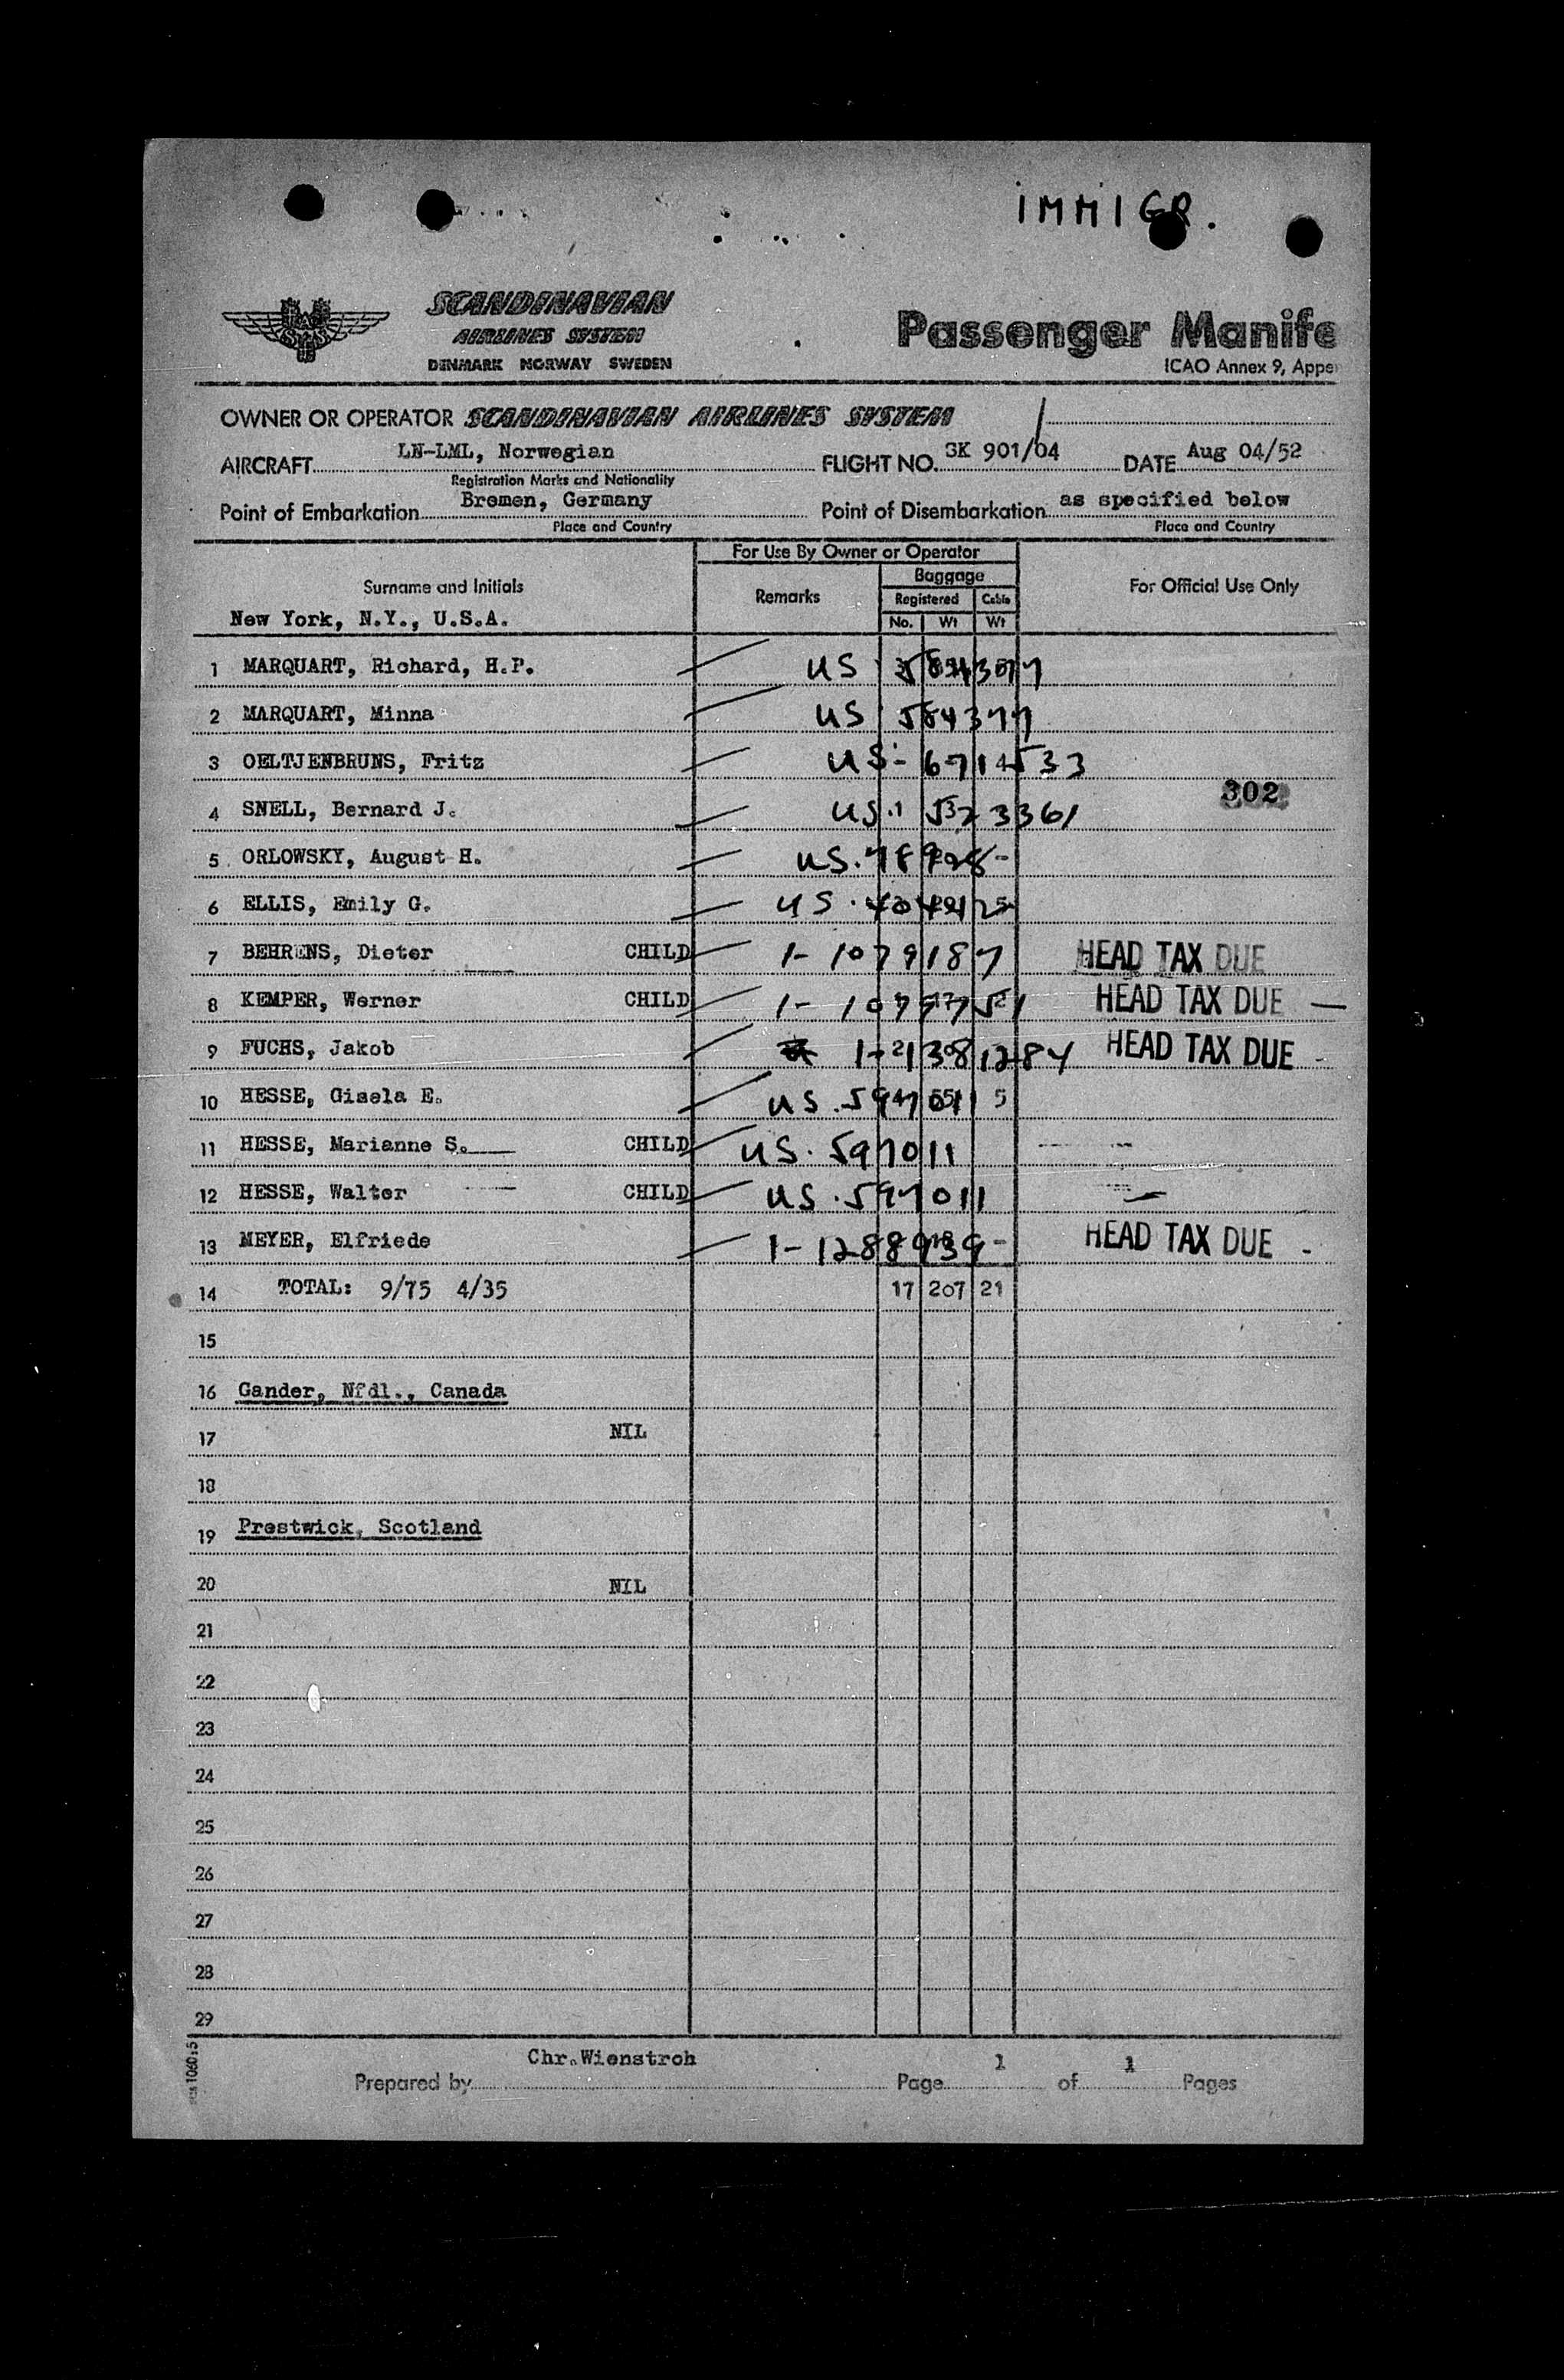 IMMIGR.
SCANDINAVIAN
AIRLINES SYSTEM
DENMARK NORWAY SWEDEN
Passenger Manife
ICAO Annex 9, Appe
OWNER OR OPERATOR SCANDINAVIAN AIRLINES SYSTEM
AIRCRAFT LN-LML, Norwegian FLIGHT NO. SK 901/04 DATE Aug 04/52
Registration Marks and Nationality
Point of Embarkation Bremen, Germany Point of Disembarkation as specified below
Place and Country Place and Country
For Use By Owner or Operator
Surname and Initials Remarks Baggage For Official Use Only
Registered Cabin
New York, N.Y., U.S.A. No. Wt Wt
1 MARQUART, Richard, H.P. US
2 MARQUART, Minna US 584377
3 OELTJENBRUNS, Fritz US-
302
4 SNELL, Bernard J. US.
5 ORLOWSKY, August H. US.
6 ELLIS, Emily G. US.
7 BEHRENS, Dieter CHILD 1-1079187 HEAD TAX DUE
8 KEMPER, Werner CHILD HEAD TAX DUE
9 FUCHS, Jakob HEAD TAX DUE
10 HESSE, Gisela E. US.
11 HESSE, Marianne S. CHILD US. 597011
12 HESSE, Walter CHILD US. 597011
13 MEYER, Elfriede HEAD TAX DUE
14 TOTAL: 9/75 4/35 17 207 21
15
16 Gander, Nfdl., Canada
17 NIL
18
19 Prestwick, Scotland
20 NIL
21
22
23
24
25
26
27
28
29
1060:5
Prepared by Chr.Wienstroh Page 1 of 1 Pages